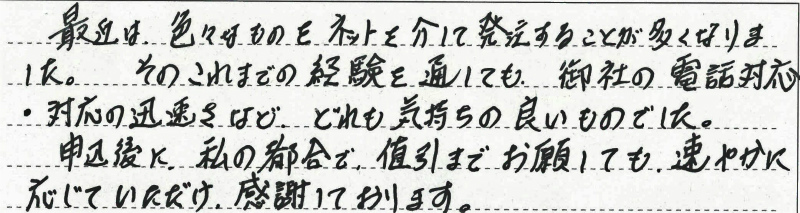 最近は、色々なものをネットを介して発注することが多くなりま
した。 そのこれまでの経験を通しても、御社の電話対応
・対応の迅速さなど、どれも気持ちの良いものでした。
申込後に、私の都合で、値引までお願いしても、速やかに
応じていただけ、感謝しております。